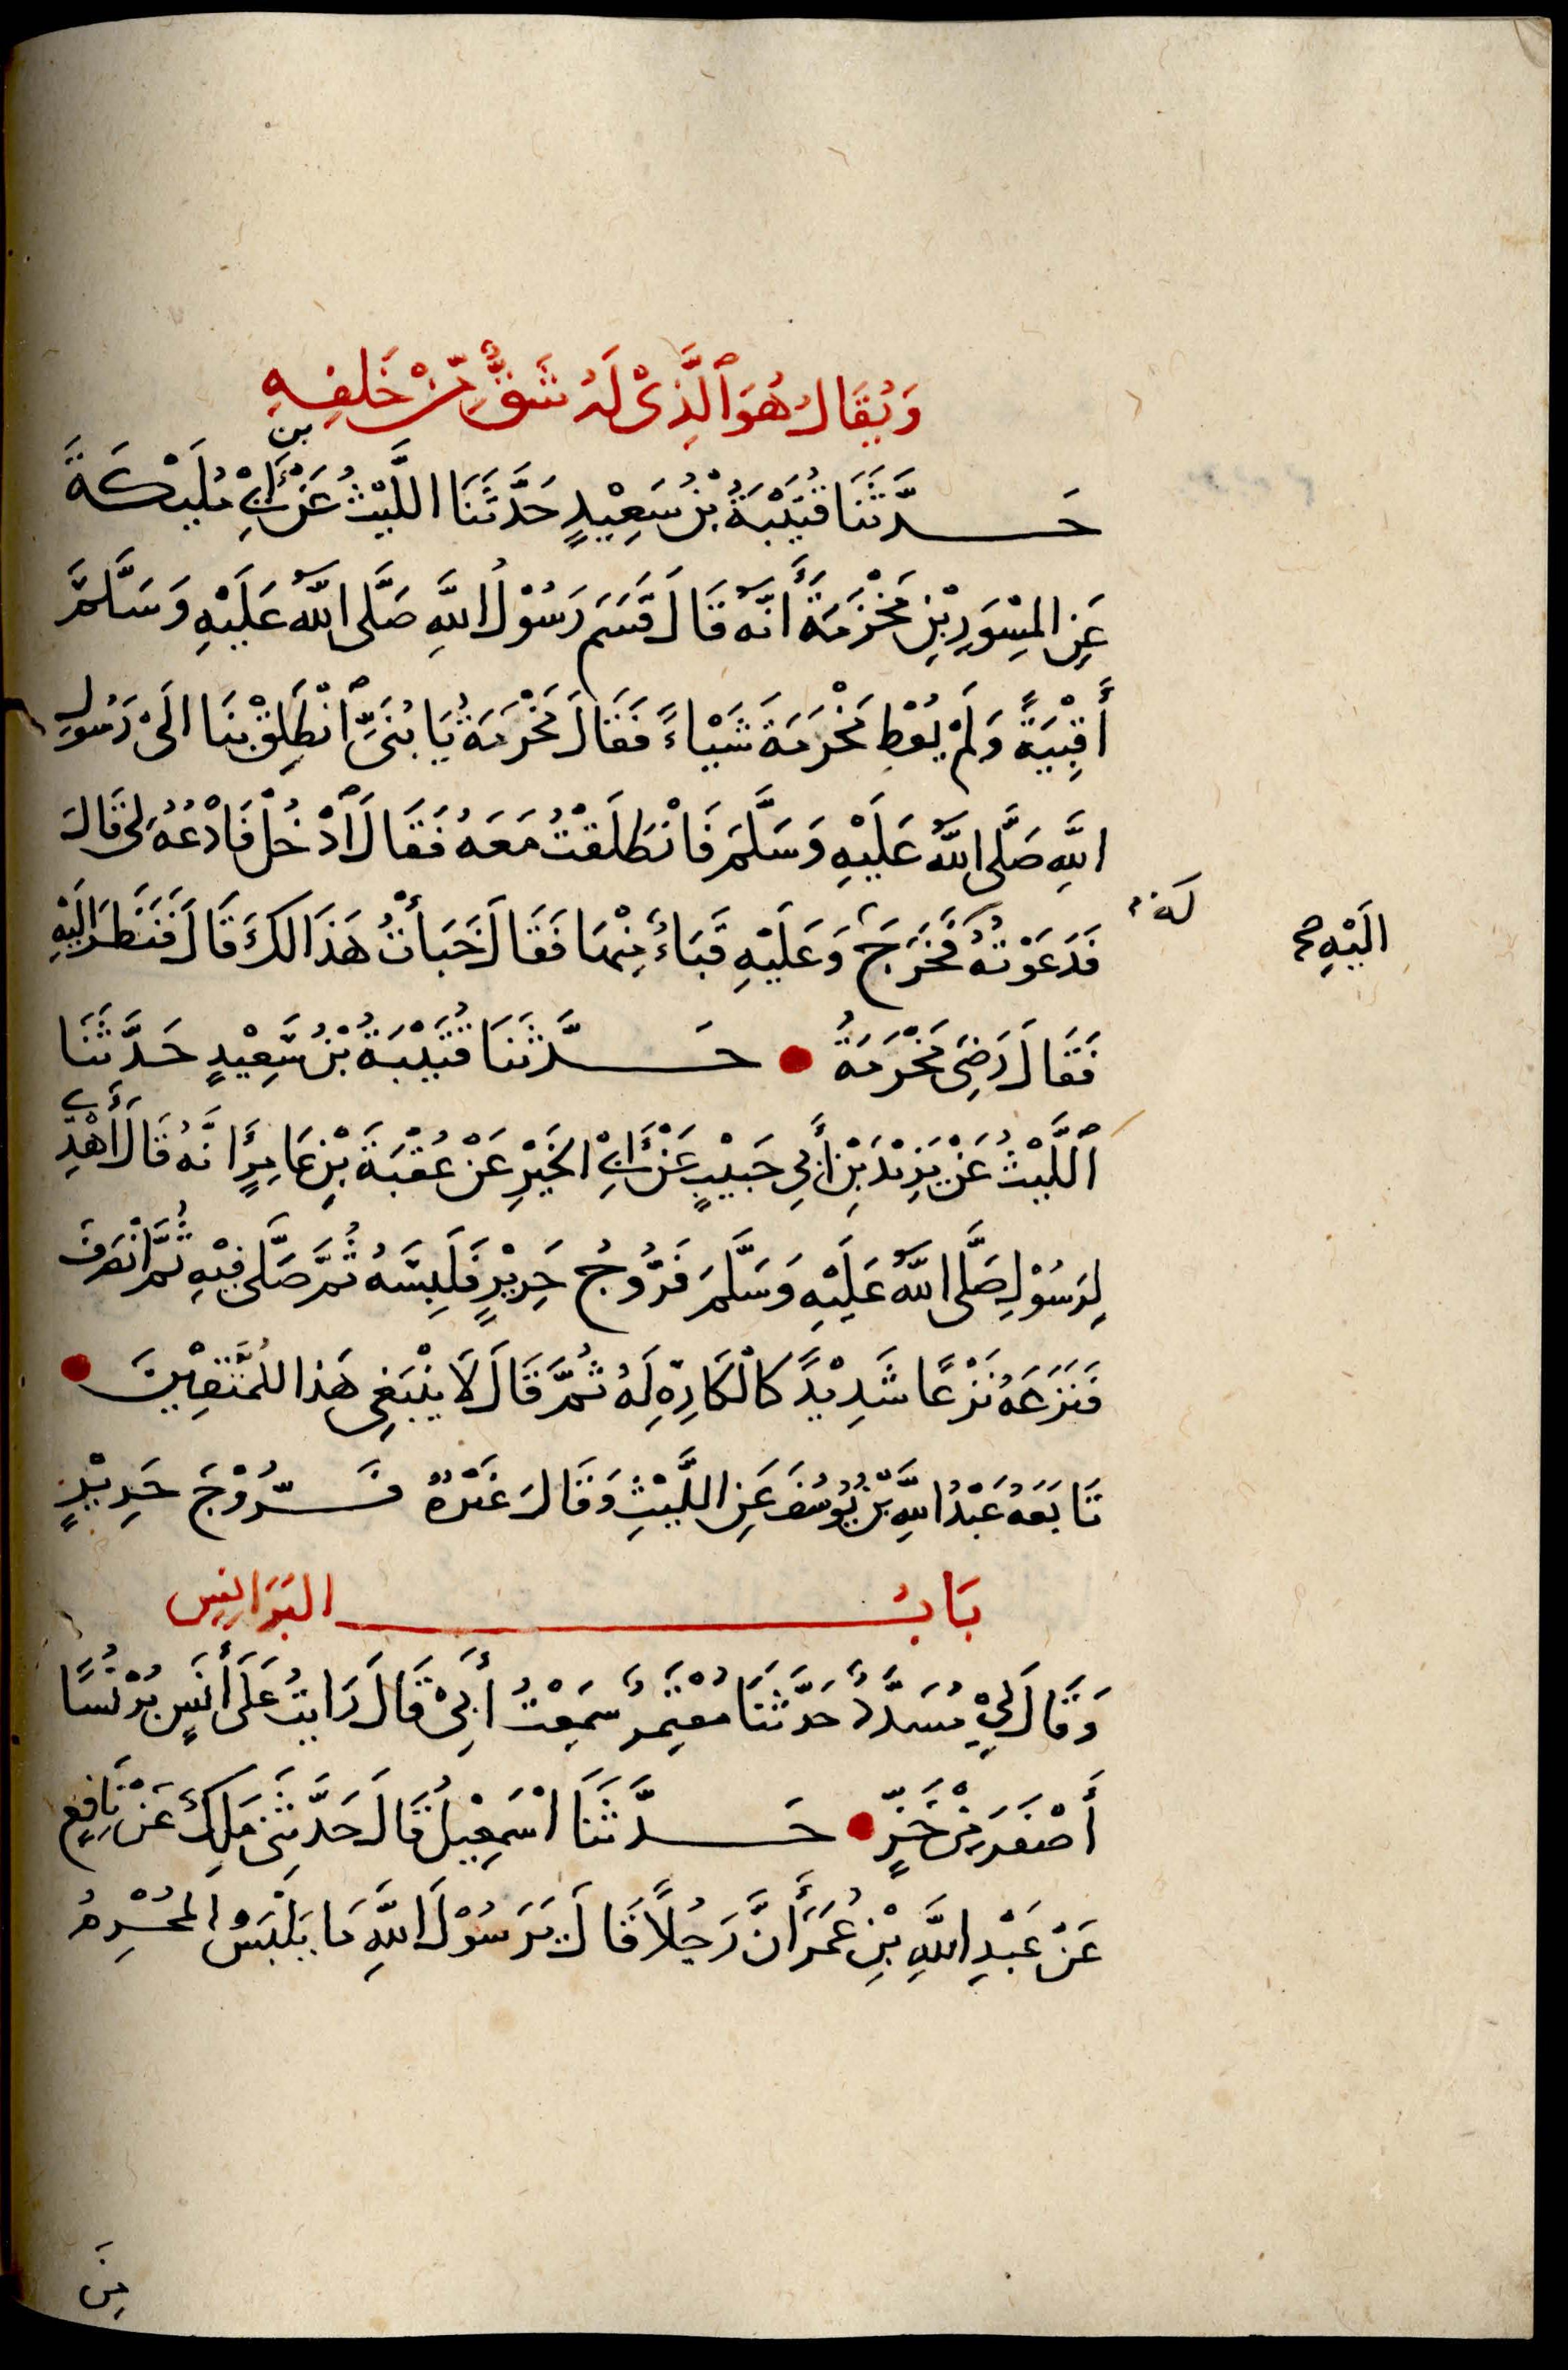 وَيُقَالُ هُوَ ٱلَّذِىْ لَهُ شَقٌّ مِّنْ خَلفِهِ
حَدَّثَنَا قُتَيْبَةُ بْنُ سَعِيْدٍ حَدَّثَنَا اللَّيْثُ عَنْ بن أَبِىْ مُلَيْكَةَ
عَنِ المِسْوَرِ بْنِ مَخْرَمَةَ أَنَّهُ قَالَ قَسَمَ رَسُوْلُ اللَّهِ صَلَّى اللَّهُ عَلَيْهِ وَسَلَّمَ
أَقْبِيَةً وَلَمْ يُعْطِ مَخْرَمَةَ شَيْاءً فَقَالَ مَخْرَمَةُ يَا بُنَىِّ ٱنْطَلِقْ بِنَا الَىْ رَسُولِ
اللَّهِ صَلَّى اللَّهُ عَلَيْهِ وَسَلَّمَ فَانْطَلَقْتُ مَعَهُ فَقَالَ ٱدْخُلْ فَادْعُهُ لِى قَالَ
فَدَعَوْتُهُ لَهُ فَخَرَجَ وَعَلَيْهِ قَبَاءٌ مِنْهَا فَقَالَ خَبَأْتُ هَذَا لَكَ قَالَ فَنَظَرَ الَيْهِ
الَيْهِ صح
فَقَالَ رَضِىَ مَخْرَمَةُ حَدَّثَنَا قُتَيْبَةُ بْنُ سَعِيْدٍ حَدَّثَنَا
ٱللَّيْثُ عَنْ يَزِيْدَ بْنِ أَبِي حَبِيْبٍ عَنْ أَبِىْ الخَيْرِ عَنْ عُقْبَةَ بْنِ عَامِرٍ أَنَّهُ قَالَ أُهْدِىَ
لِرَسُوْلِ صَلَّى اللَّهُ عَلَيْهِ وَسَلَّمَ فَرُّوجُ حَرِيْرٍ فَلَبِسَهُ ثُمَّ صَلَّى فِيْهِ ثُمَّ انْصَرَفَ
فَنَزَعَهُ نَزْعًا شَدِيْدً كَالْكَارِهِ لَهُ ثُمَّ قَالَ لَا يَنْبَغِى هَذا لِلْمُتَّقِيْنَ
تَابَعَهُ عَبْدُ اللَّهِ بْنُ يُوْسُفَ عَنِ اللَّيْثِ وَقَالَ غَيْرُهُ فَرُّوْجَ حَرِيْرٍ
بَابُ البَرَانِسِ
وَقَالَ لِىْ مُسَدَّدٌ حَدَّثَنَا مُعْتَمِرٌ سَمِعْتُ أَبِىْ قَالَ رَايتُ عَلَى أَنَسٍ بُرْنُسًا
أَصْفَرَ مِنْ خَزٍّ حَدَّثَنَا اسْمَعِيْلُ قَالَ حَدَّثَنِى مَلِكٌ عَنْ نَافِعٍ
عَنْ عَبْدِ اللَّهِ بْنِ عُمَرَ أَنَّ رَجُلًا قَالَ يَرَسُوْلَ اللَّهِ مَا يَلْبَسُ المُحْرِمُ
مِنَ